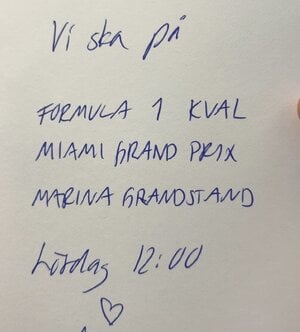 Vi ska på
FORMULA 1 KVAL
MIAMI GRAND PRIX
MARINA GRANDSTAND
Lördag 12:00